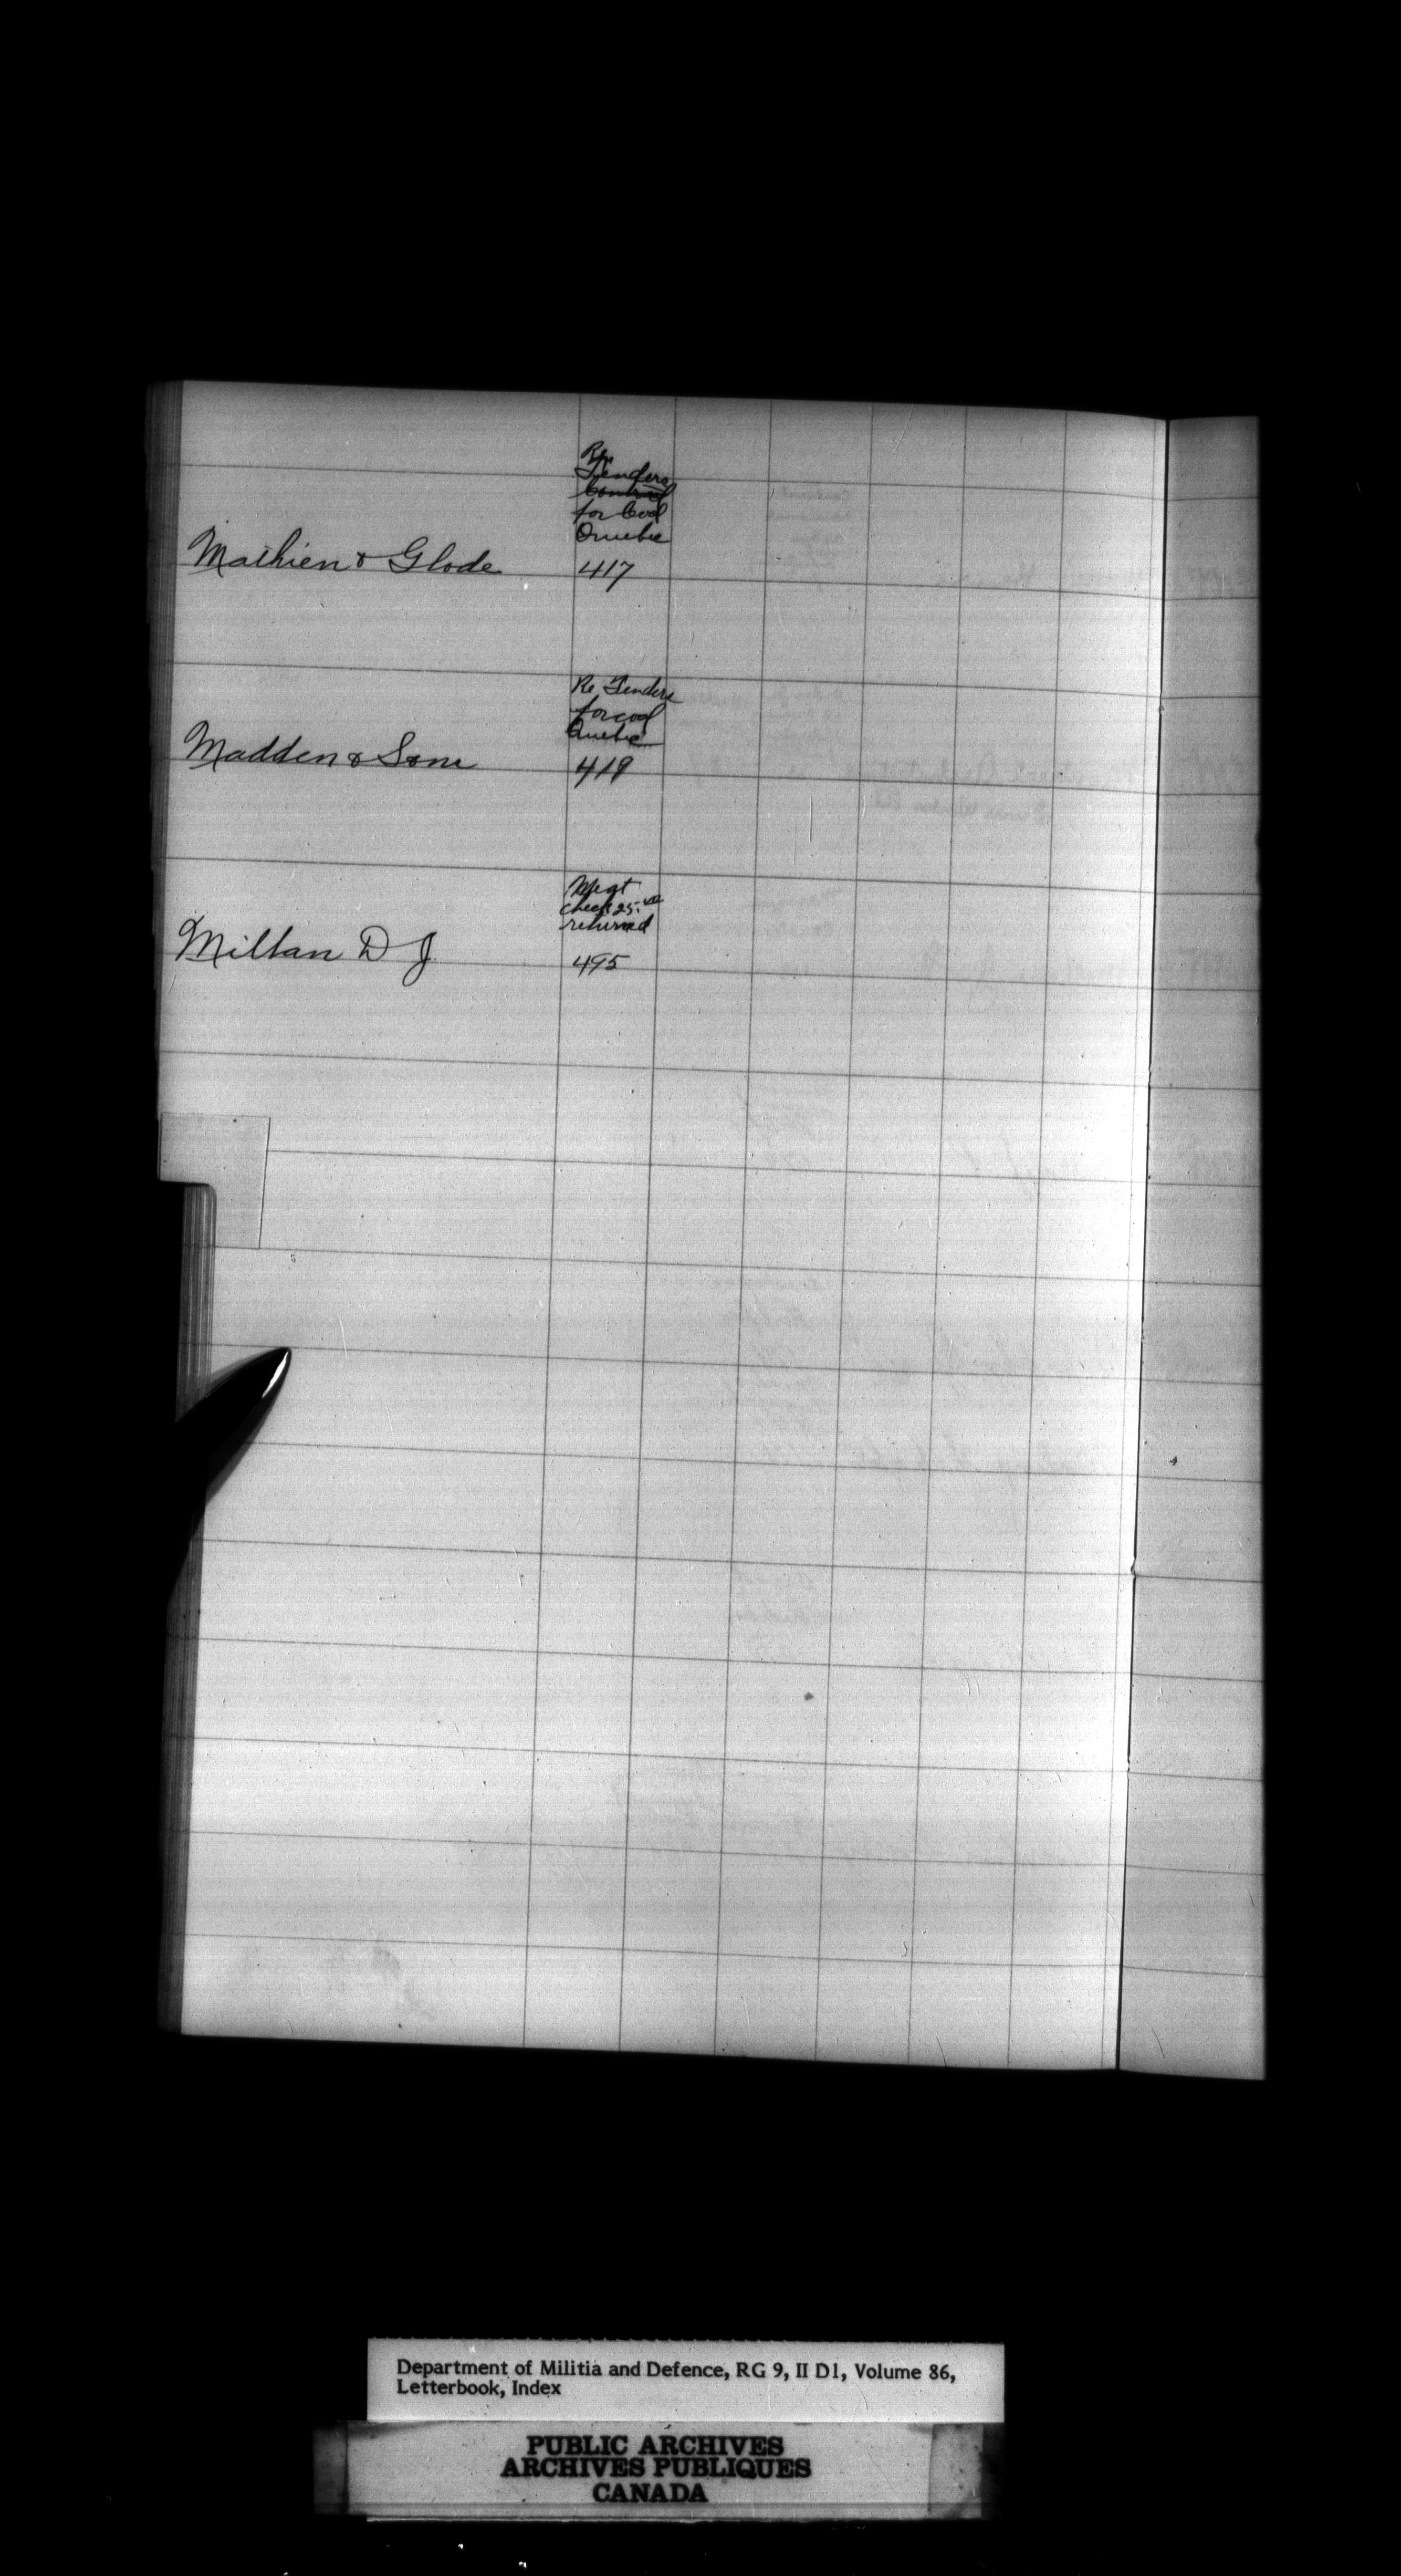 Re
Tenders
Contract
for Coal
Quebec
Mathieu & Glode 417
Re Tenders
for coal
Quebec
Madden & Sons 419
check 25.00
returned
Millan D J 495
Department of Militia and Defence, RG 9, II D1, Volume 86,
Letterbook, Index
PUBLIC ARCHIVES
ARCHIVES PUBLIQUES
CANADA